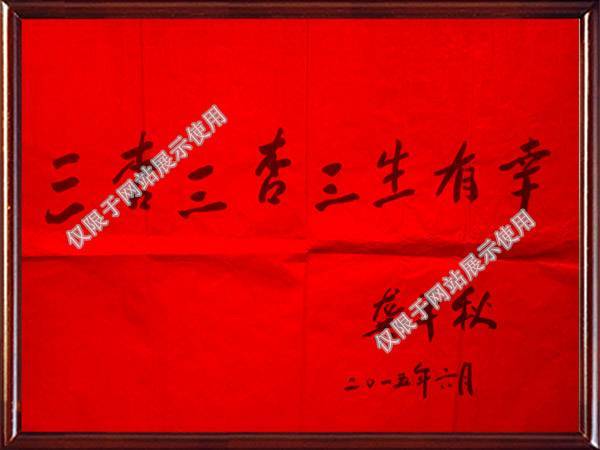 三杏三杏三生有幸
龚千秋
二〇一五年六月
仅限于网站展示使用
仅限于网站展示使用